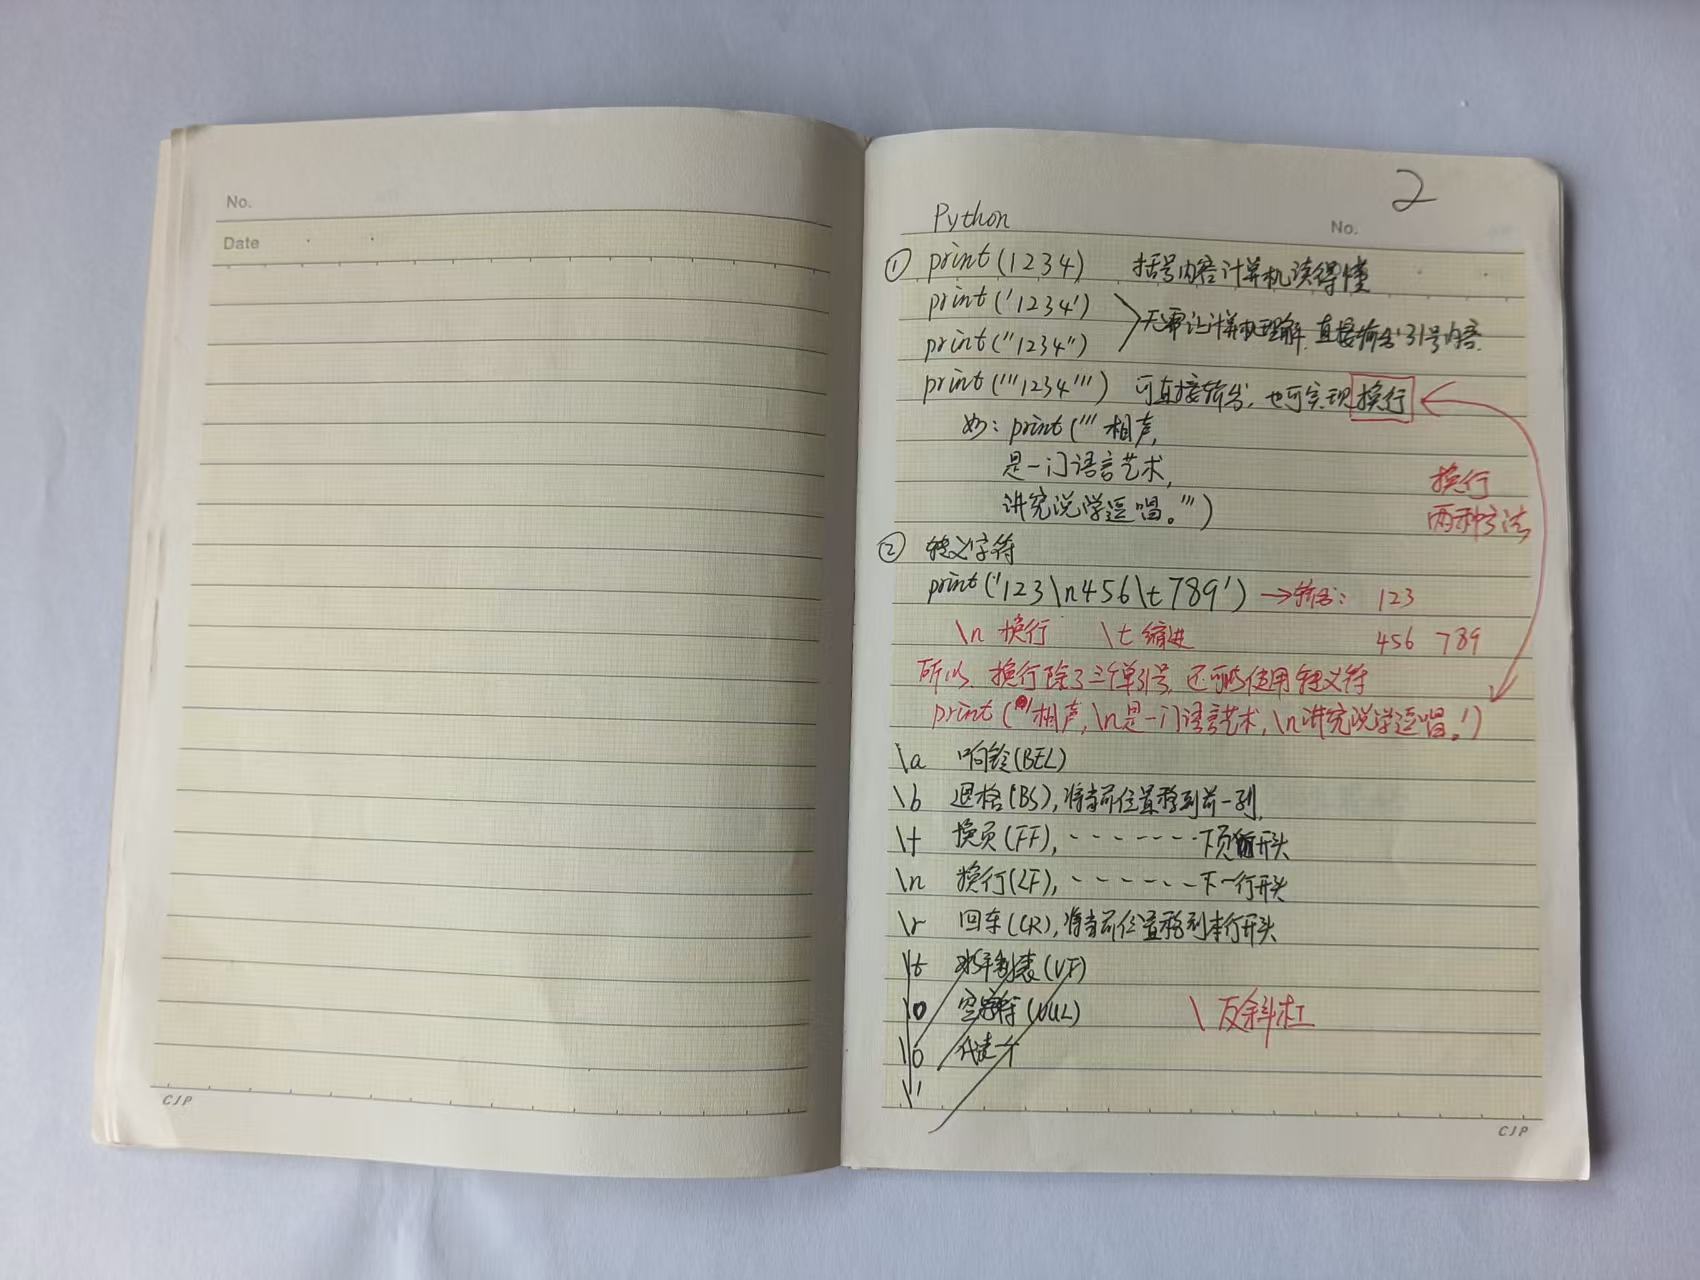 No.
Date
CJP
2
Python
No.
① print(1234) 括号内容计算机读得懂
print('1234')
print("1234") 无需让计算机理解,直接输出引号内容.
print('''1234''') 可直接输出,也可实现换行
如: print('''相声,
是一门语言艺术,
讲究说学逗唱。''')
换行
两种方法
② 转义字符
print('123\n456\t789') →输出: 123
\n 换行 \t 缩进 456 789
所以,换行除了三个单引号,还可以使用转义符
print('相声,\n是一门语言艺术,\n讲究说学逗唱。')
\a 响铃(BEL)
\b 退格(BS),将当前位置移到前一列.
\f 换页(FF), - - - - - - - 下页开头
\n 换行(LF), - - - - - - 下一行开头
\r 回车(CR),将当前位置移到本行开头
\t 水平制表(VF)
\0 空字符(NUL) \ 反斜杠
\0 代表一个
\'
CJP